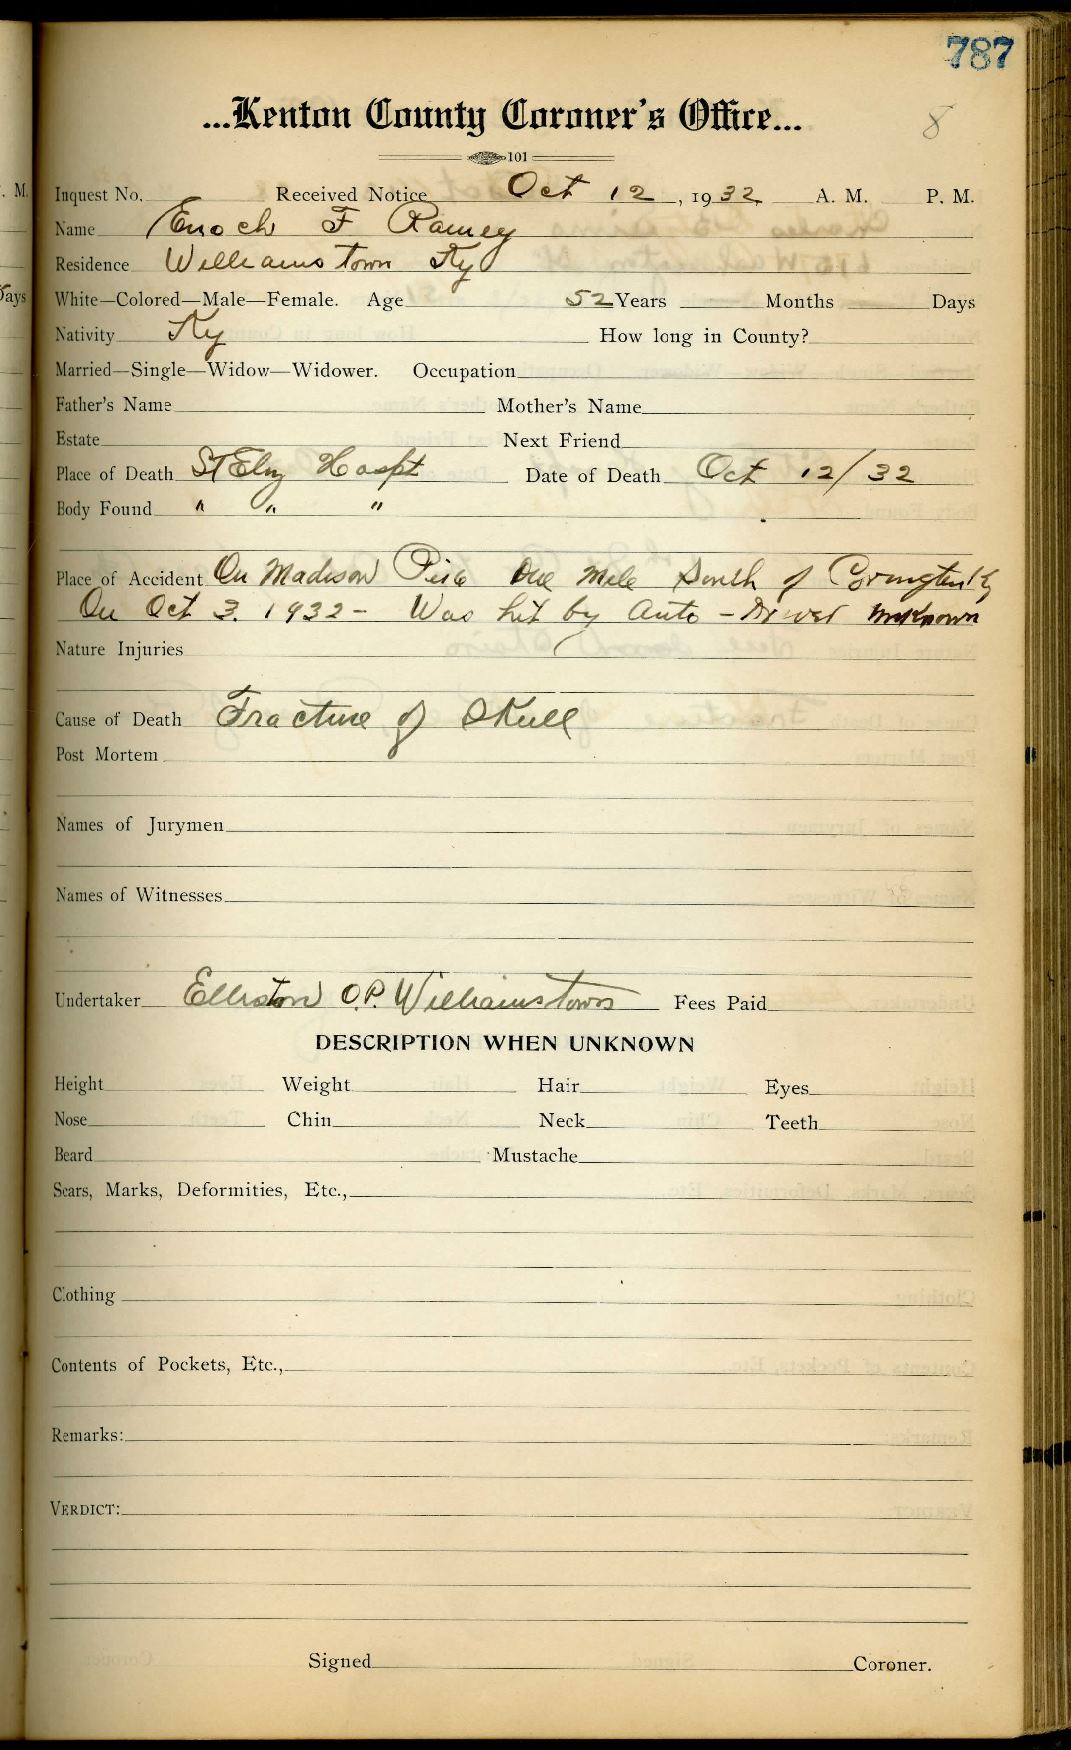 787
...Kenton County Coroner's Office...
8
101
Inquest No. Received Notice Oct 12, 1932 A. M. P. M.
Name Enoch F Ramey
Residence Williamstown Ky
White—Colored—Male—Female. Age 52 Years Months Days
Nativity Ky How long in County?
Married—Single—Widow—Widower. Occupation
Father's Name Mother's Name
Estate Next Friend
Place of Death St Eliz Hospt Date of Death Oct 12/32
Body Found " " "
Place of Accident On Madison Pike One Mile South of Covington Ky
On Oct 3. 1932 - Was hit by Auto - Driver unknown
Nature Injuries
Cause of Death Fracture of Skull
Post Mortem
Names of Jurymen
Names of Witnesses
Undertaker Elliston O.P. Williamstown Fees Paid
DESCRIPTION WHEN UNKNOWN
Height Weight Hair Eyes
Nose Chin Neck Teeth
Beard Mustache
Scars, Marks, Deformities, Etc.,
Clothing
Contents of Pockets, Etc.,
Remarks:
VERDICT:
Signed Coroner.